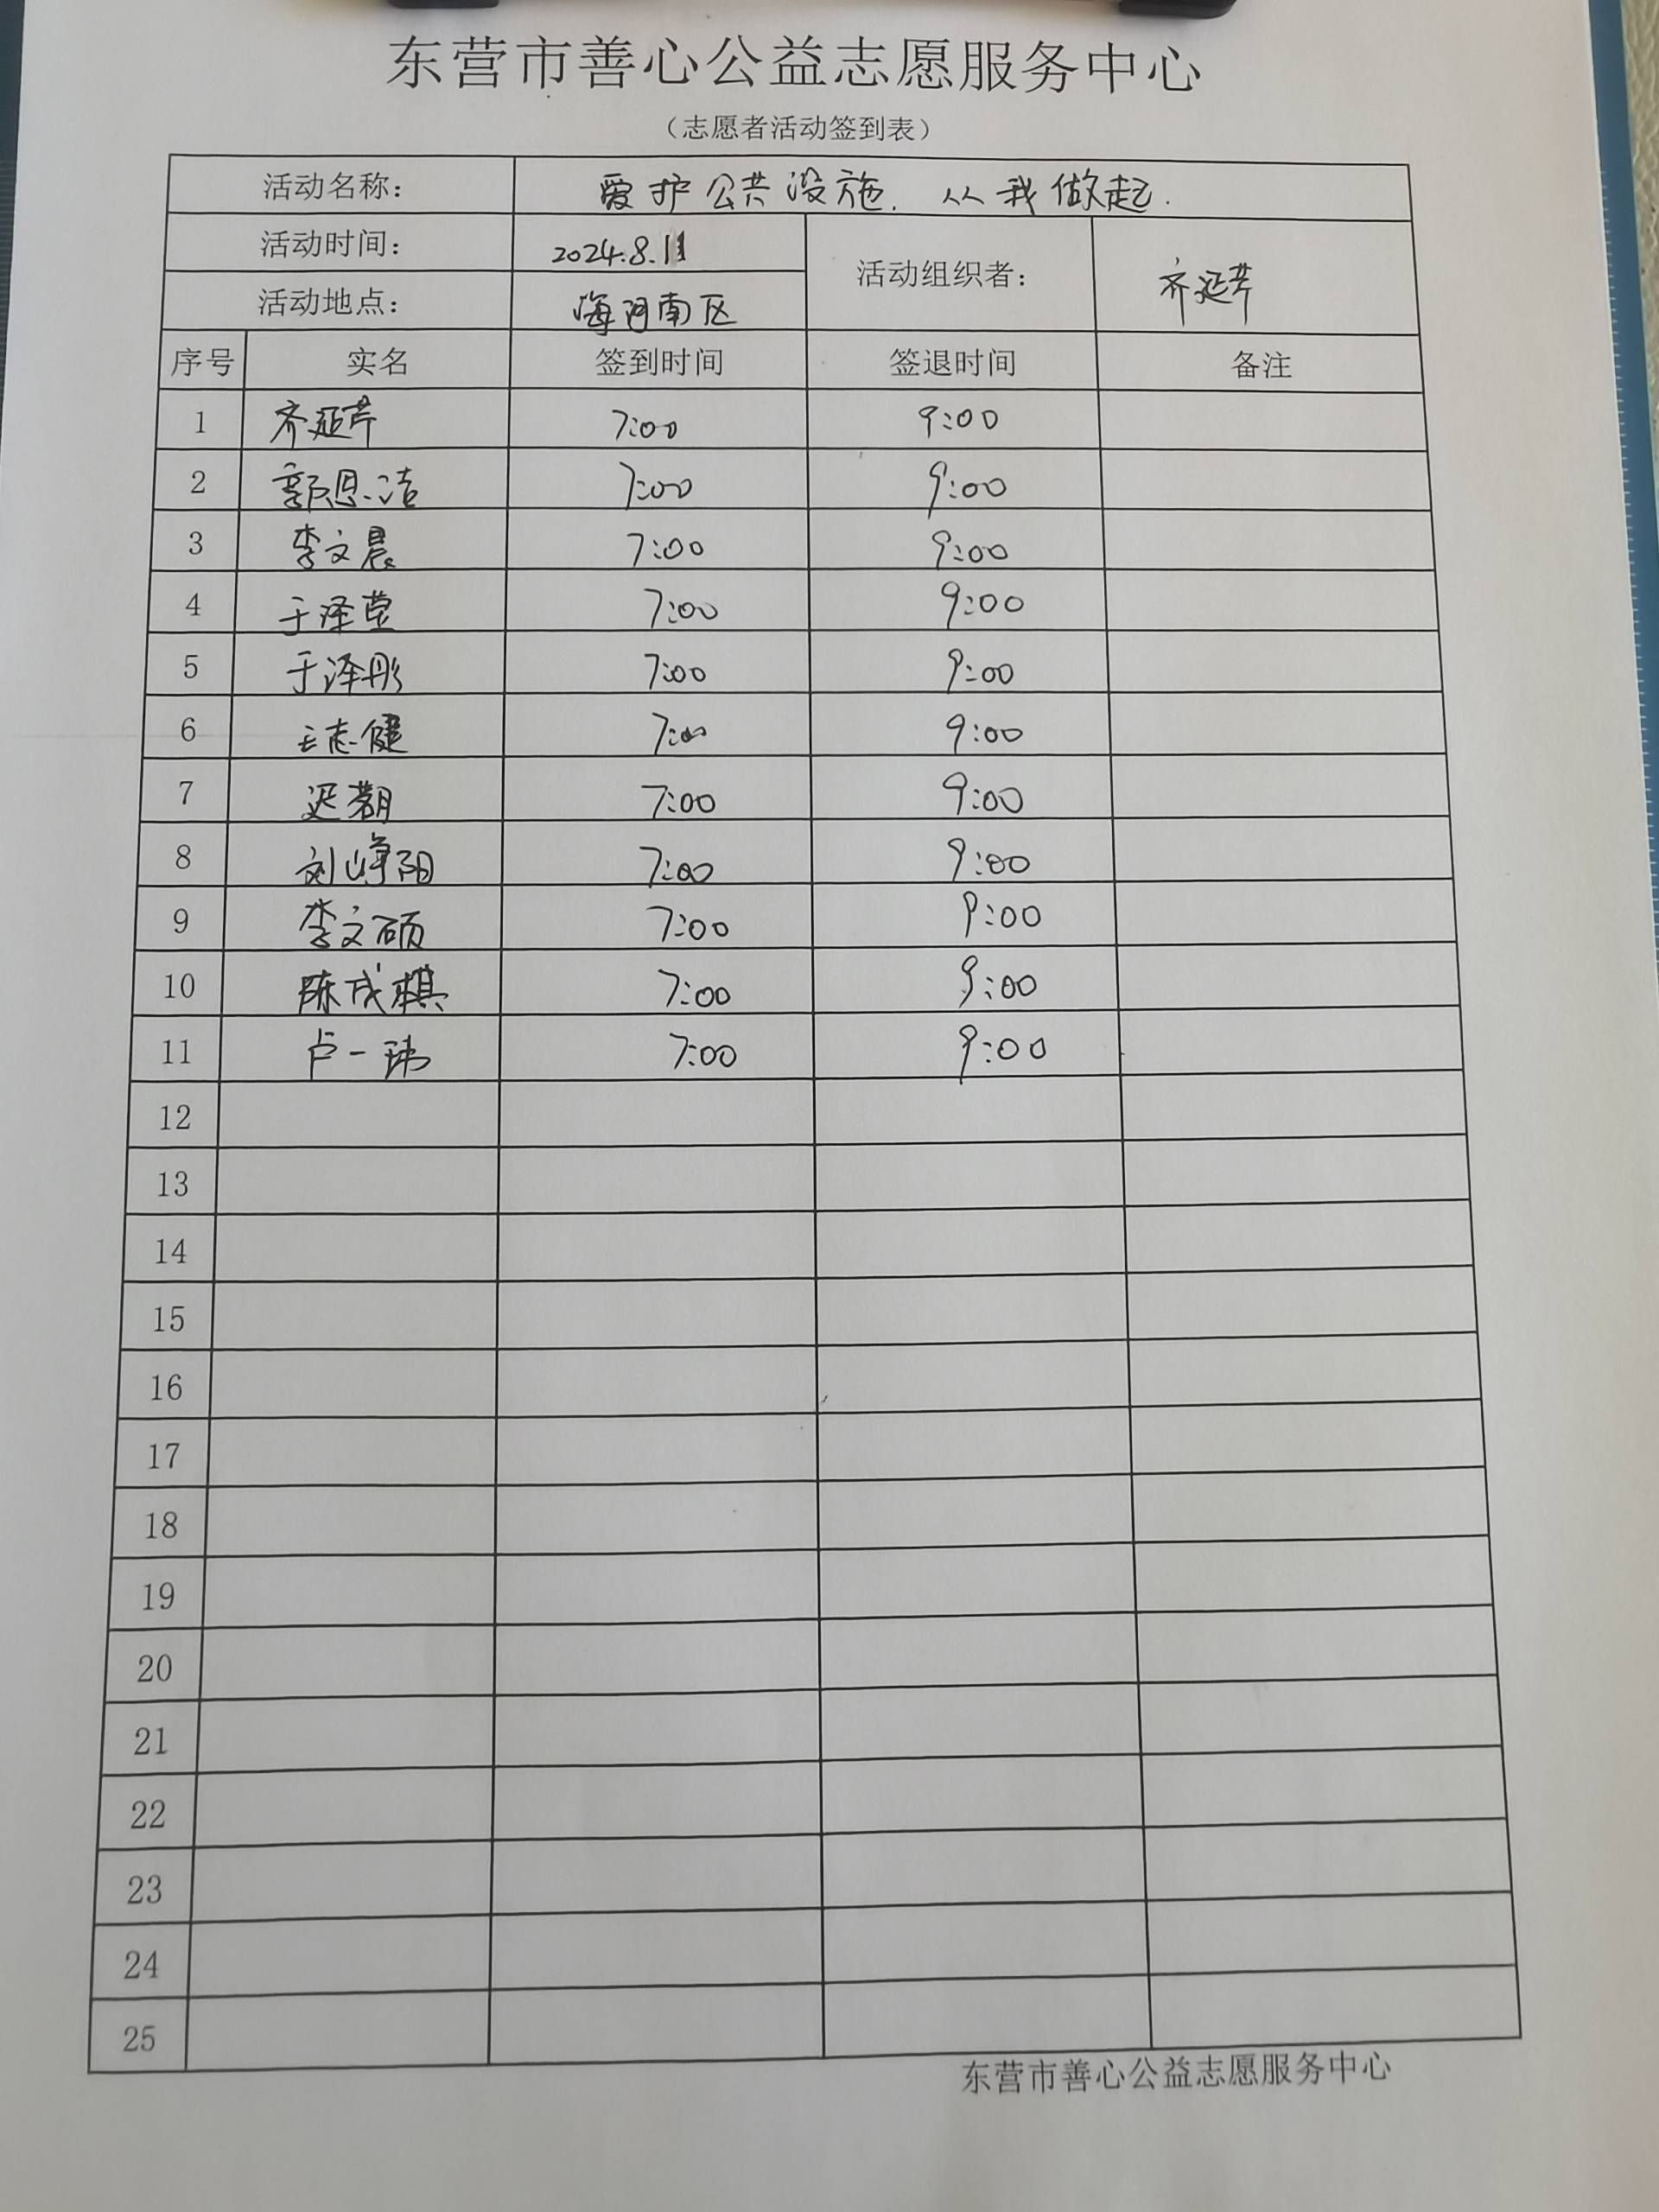 东营市善心公益志愿服务中心
（志愿者活动签到表）
活动名称： 爱护公共设施. 从我做起.
活动时间： 2024.8.11
活动组织者： 齐延芹
活动地点： 海河南区
序号 实名 签到时间 签退时间 备注
1 齐延芹 7:00 9:00
2 郭恩洁 7:00 9:00
3 李文晨 7:00 9:00
4 于泽莹 7:00 9:00
5 于泽彤 7:00 9:00
6 王志健 7:00 9:00
7 迟 7:00 9:00
8 刘峥阳 7:00 9:00
9 李文硕 7:00 9:00
10 陈成棋 7:00 9:00
11 卢一玮 7:00 9:00
12
13
14
15
16
17
18
19
20
21
22
23
24
25
东营市善心公益志愿服务中心